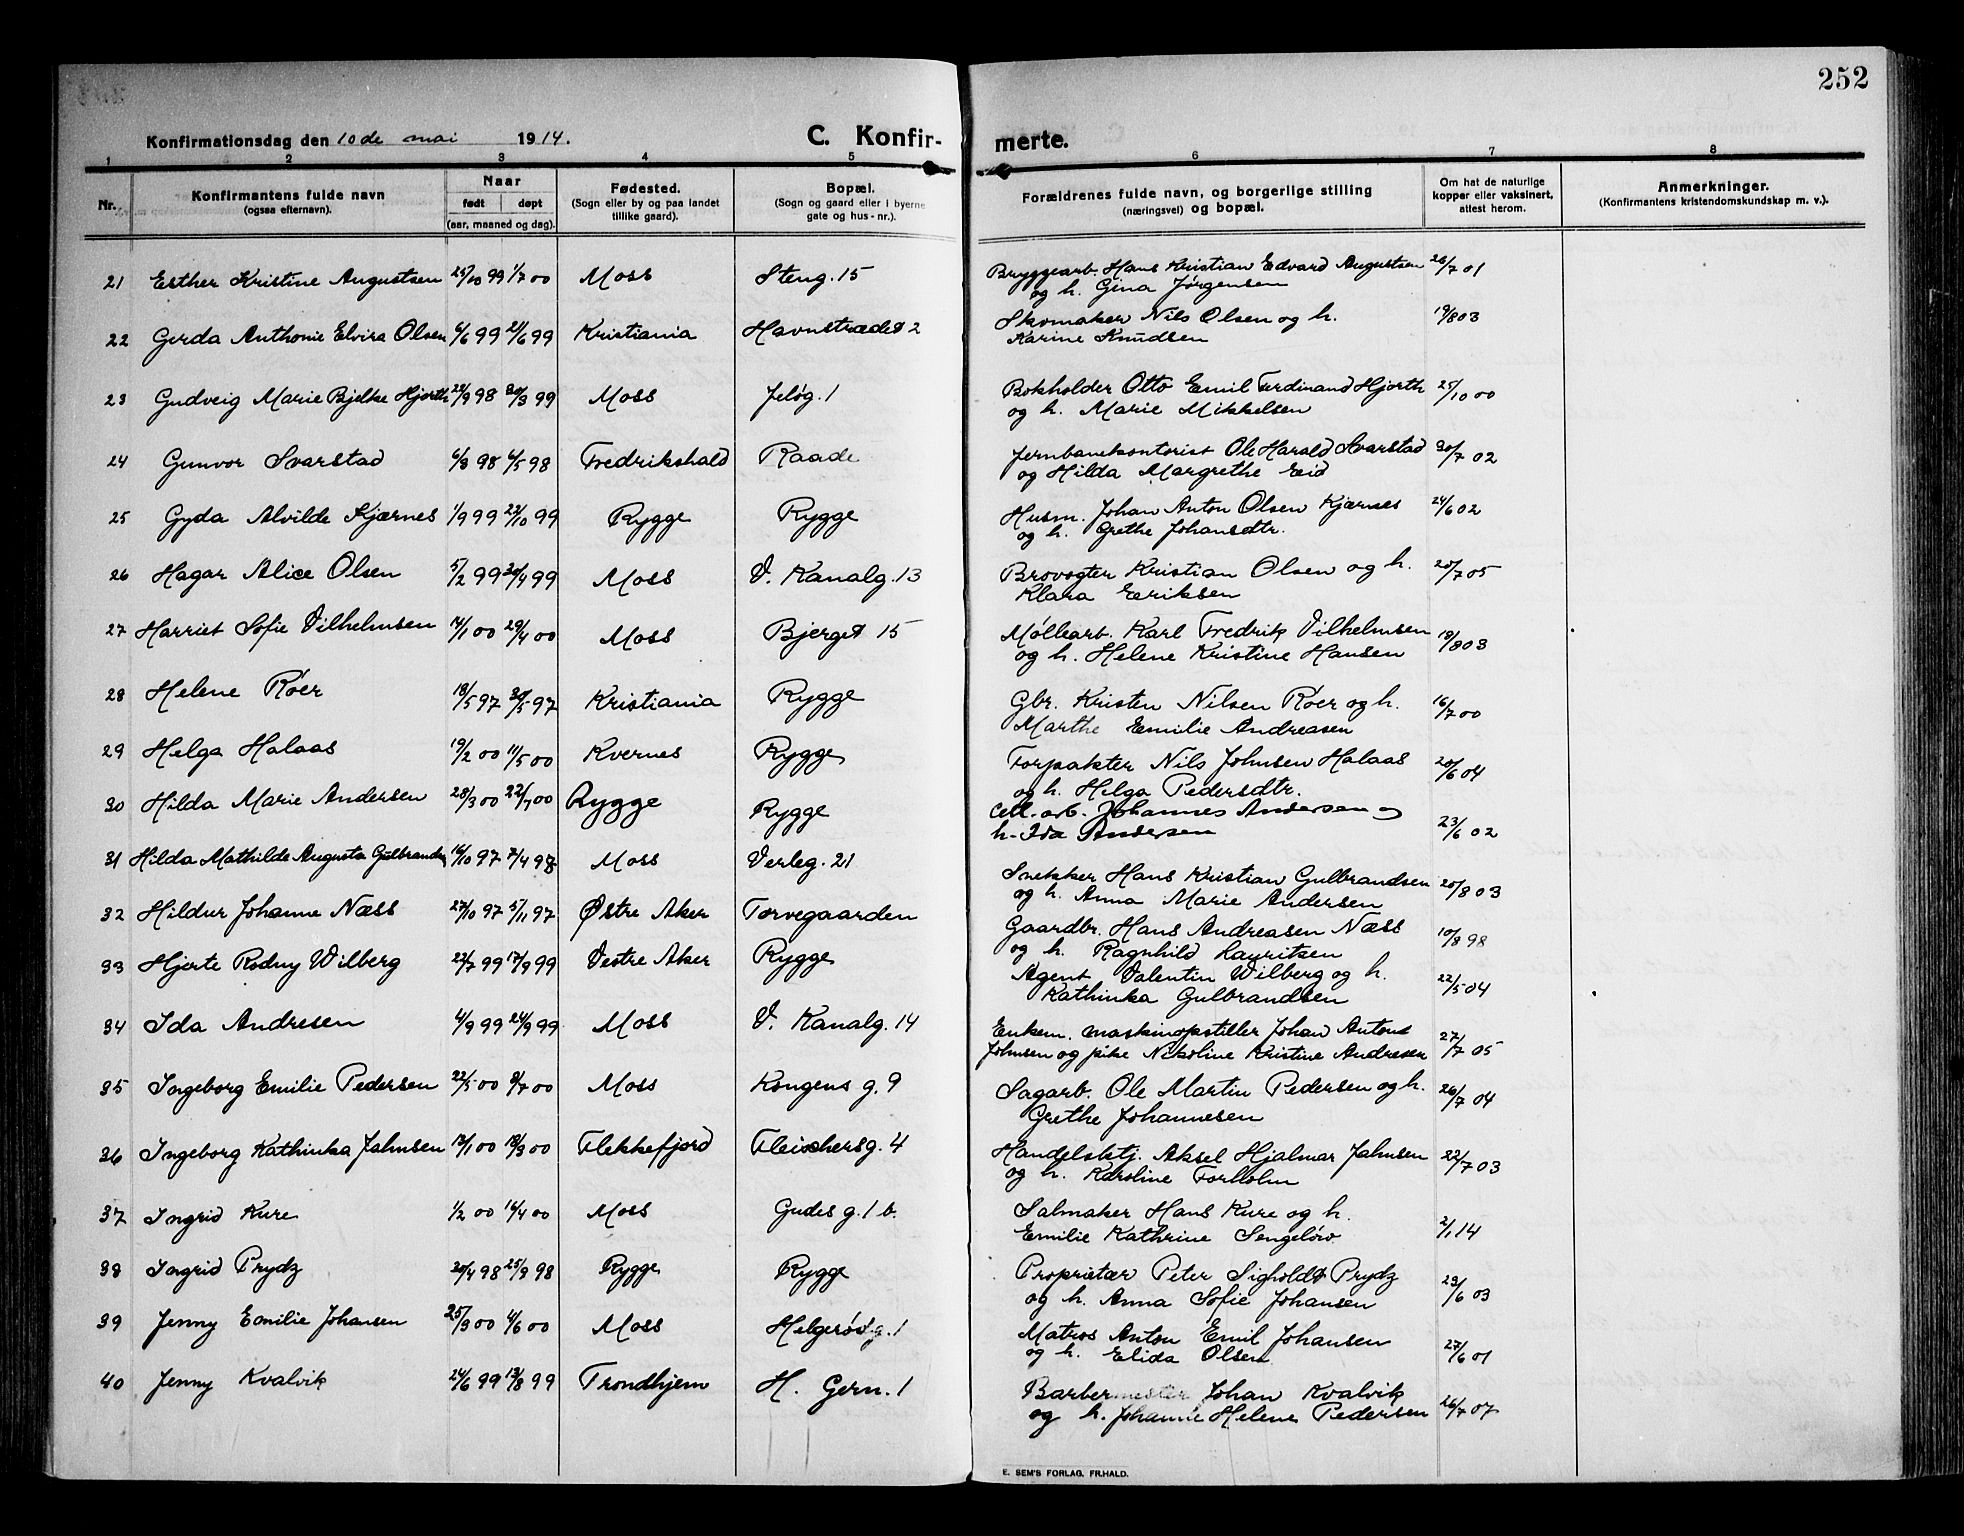 252
Konfirmationsdag den 10de mai 1914.
C. Konfir-
merte.
1 2 3 4 5 6 7 8
Nr.
Konfirmantens fulde navn
(ogsaa efternavn).
Naar
født døpt
(aar, maaned og dag).
Fødested.
(Sogn eller by og paa landet
tillike gaard).
Bopæl.
(Sogn og gaard eller i byerne
gate og hus-nr.).
Forældrenes fulde navn, og borgerlige stilling
(næringsvei) og bopæl.
Om hat de naturlige
kopper eller vaksinert,
attest herom.
Anmerkninger.
(Konfirmantens kristendomskundskap m. v.).
21 Esther Kristine Augustsen 25/10 99 1/7 00 Moss Steng. 15 Bryggearb. Hans Kristian Edvard Augustsen 26/7 01
og h. Gina Jørgensen
22 Gerda Anthonie Elvira Olsen 6/6 99 21/6 99 Kristiania Havnstrædet 2 Skomaker Nils Olsen og h. 19/8 03
Karine Knudsen
23 Gudveig Marie Bjelke Hjorth 22/9 98 30/3 99 Moss Jeløg. 1 Bokholder Otto Emil Ferdinand Hjorth 25/10 00
og h. Marie Mikkelsen
24 Gunvor Svarstad 6/3 98 6/5 98 Fredrikshald Raade Jernbanekontorist Ole Harald Svarstad 30/7 02
og Hilda Margrethe Eid
25 Gyda Alvilde Kjærnes 1/9 99 22/10 99 Rygge Rygge Husm. Johan Anton Olsen Kjærnes 24/6 02
og h. Grethe Johansdtr.
26 Hagar Alice Olsen 5/2 99 30/4 99 Moss V. Kanalg. 13 Brovogter Kristian Olsen og h. 20/7 05
Klara Eriksen
27 Harriet Sofie Vilhelmsen 14/1 00 29/4 00 Moss Bjerget 15 Møllearb. Karl Fredrik Vilhelmsen 18/8 03
og h. Helene Kristine Hansen
28 Helene Røer 18/5 97 30/5 97 Kristiania Rygge Gbr. Kristen Nilsen Røer og h. 16/7 00
Marthe Emilie Andreasen
29 Helga Halaas 19/2 00 11/5 00 Kvernes Rygge Forpakter Nils Johnsen Halaas 20/6 04
og h. Helga Pedersdtr.
30 Hilda Marie Andersen 28/3 00 22/7 00 Rygge Rygge Cell. arb. Johannes Andersen og
h. Ida Andersen 23/6 02
31 Hilda Mathilde Augusta Gulbrandsen 16/10 97 7/4 98 Moss Verleg. 21 Snekker Hans Kristian Gulbrandsen 20/8 03
og h. Anna Marie Andersen
32 Hildur Johanne Næss 27/10 97 5/11 97 Østre Aker Torvegaarden Gaardbr. Hans Andreasen Næss 10/8 98
og h. Ragnhild Lauritsen
33 Hjerte Rodny Wilberg 22/7 99 17/9 99 Vestre Aker Rygge Agent Valentin Wilberg og h. 22/5 04
Kathinka Gulbrandsen
34 Ida Andresen 4/9 99 24/9 99 Moss V. Kanalg. 14 Enkem. maskinopstiller Johan Anton 27/7 05
Johnsen og pike Nikoline Kristine Andresen
35 Ingeborg Emilie Pedersen 22/5 00 8/7 00 Moss Kongens g. 9 Sagarb. Ole Martin Pedersen og h. 26/7 04
Grethe Johannesen
36 Ingeborg Kathinka Jahnsen 12/1 00 18/3 00 Flekkefjord Fleischersg. 4 Handelsktj. Aksel Hjalmar Jahnsen 22/7 03
og h. Karoline Torkholm
37 Ingrid Kure 1/2 00 16/4 00 Moss Gudes g. 1 b. Salmaker Hans Kure og h. 2/1 14
Emilie Kathrine Sengeløw
38 Ingrid Prydz 20/4 98 25/9 98 Rygge Rygge Proprietær Peter Sigholdt Prydz 23/6 03
og h. Anna Sofie Johansen
39 Jenny Emilie Johansen 25/3 00 4/6 00 Moss Helgerødg. 1 Matros Anton Emil Johansen 27/6 01
og h. Elida Olsen
40 Jenny Kvalvik 24/6 99 13/8 99 Trondhjem H. Gern. 1 Barbermester Johan Kvalvik 26/7 07
og h. Johanne Helene Pedersen
E. SEM'S FORLAG. FR.HALD.